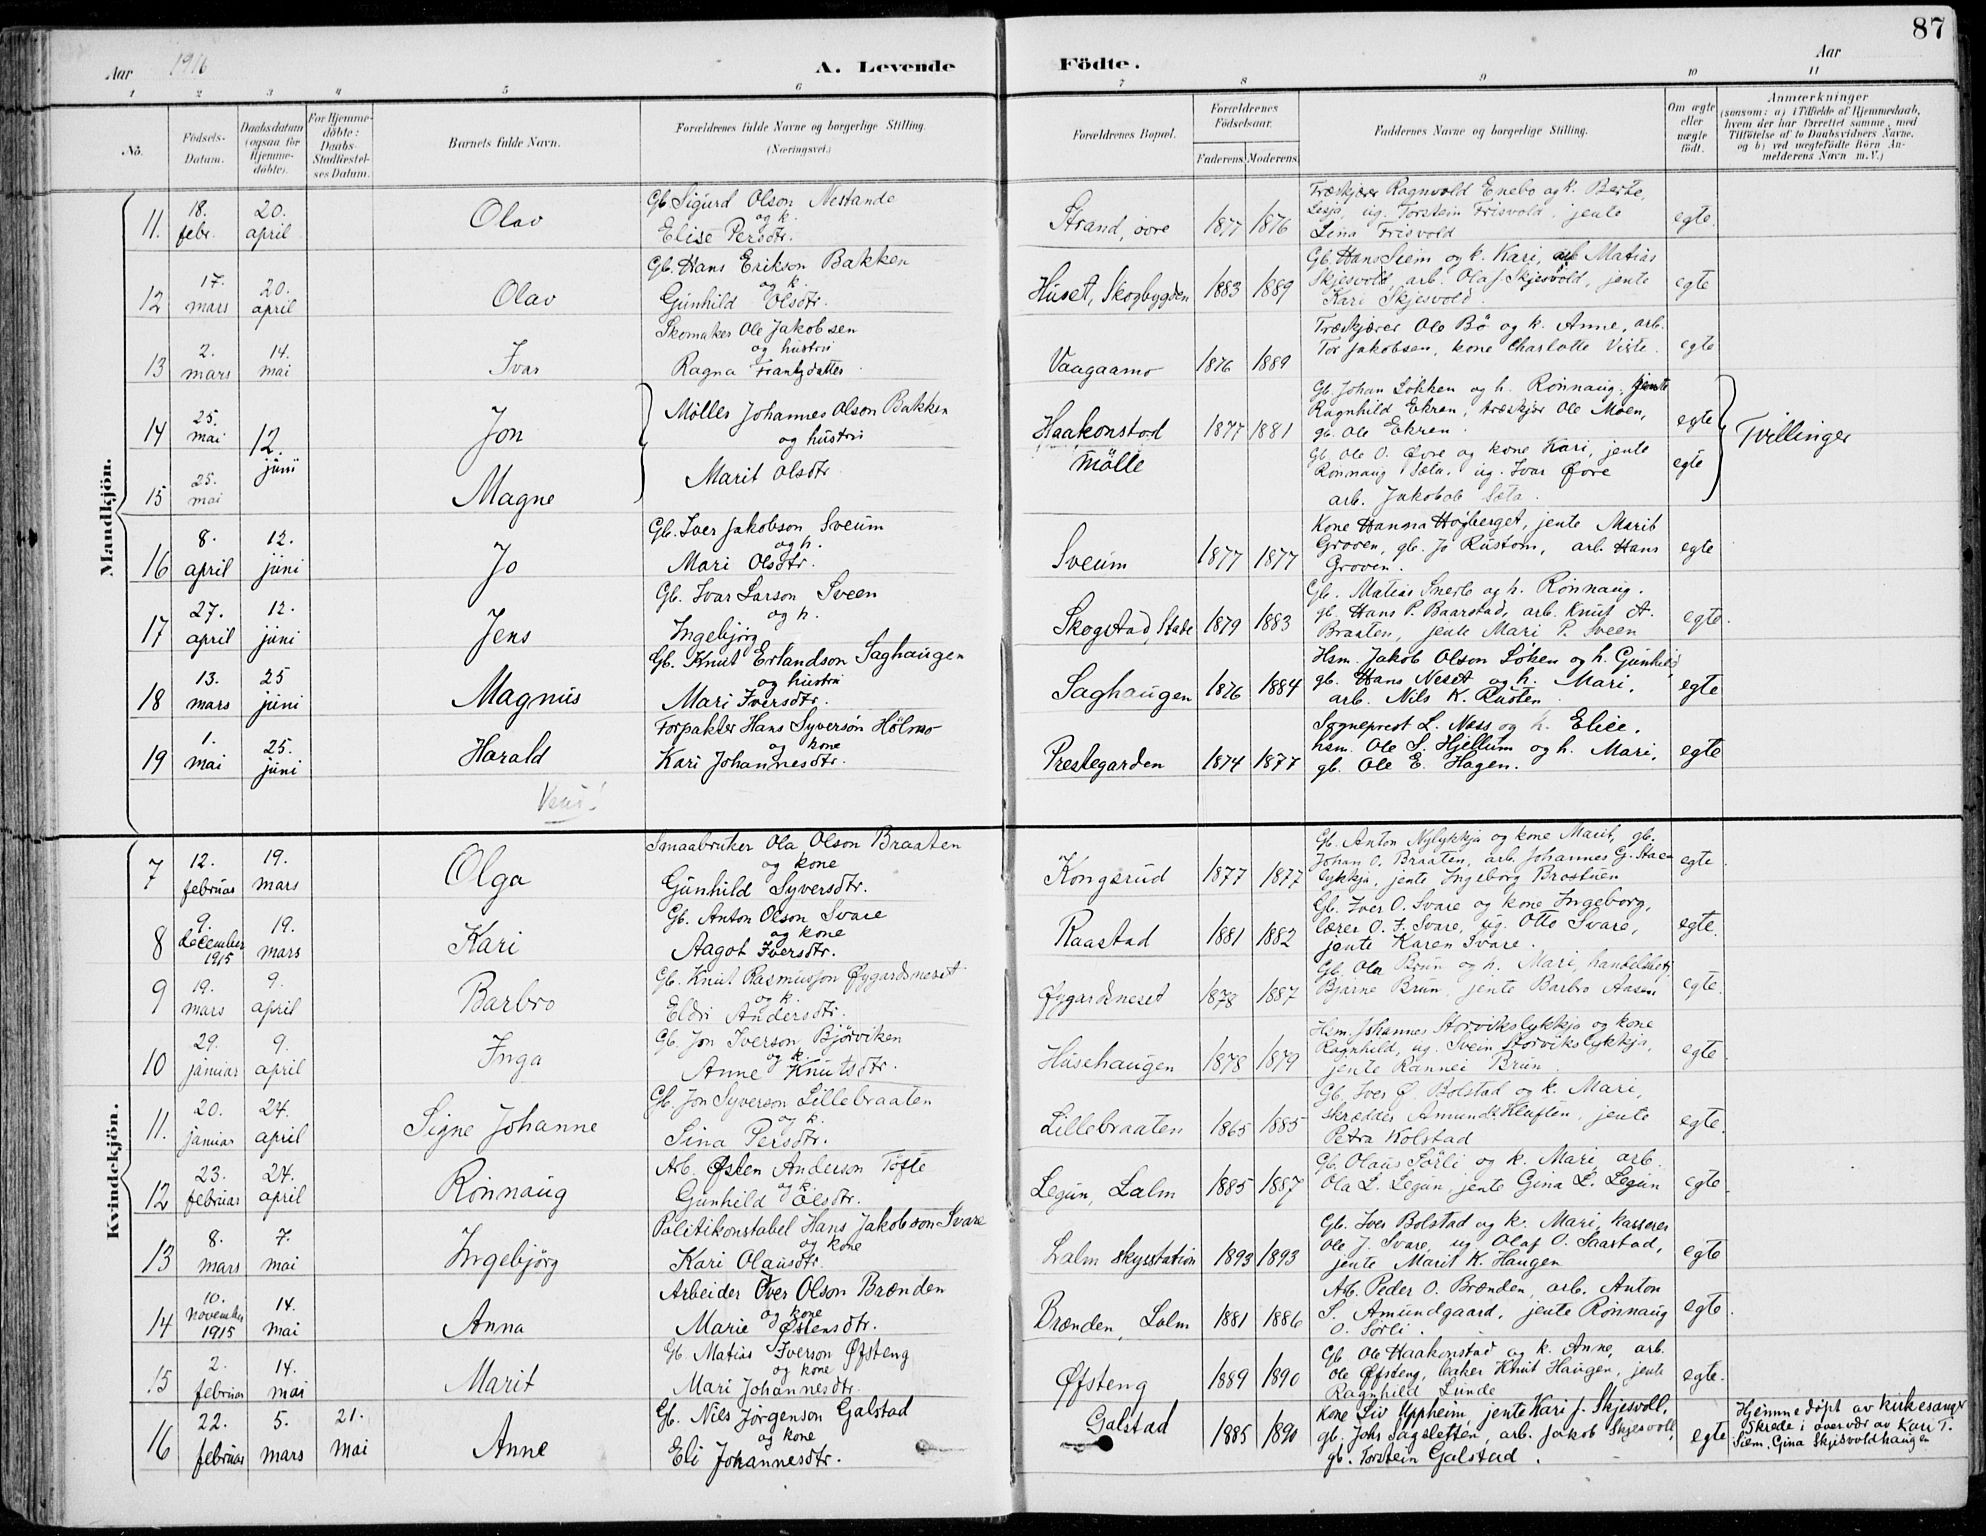 87
Aar 1916 A. Levende Födte. Aar
1 2 3 4 5 6 7 8 9 10 11
No. Födsels-Datum. Daabsdatum (ogsaa for Hjemme-döbte). For Hjemme-döbte: Daabs-Stadfæstel-ses Datum. Barnets fulde Navn. Forældrenes fulde Navne og borgerlige Stilling. (Næringsvei.) Forældrenes Bopæl. Forældrenes Födselsaar. Faderens. Moderens. Faddernes Navne og borgerlige Stilling. Om ægte eller uægte födt. Anmærkninger
(saasom: a) i Tilfælde af Hjemmedaab, hvem der har forrettet samme, med Tilföielse af to Daabsvidners Navne, og b) ved uægtefödte Börn An-melderens Navn m.V.)
Mandkjön.
11. 18. febr. 20. april Olav Gb. Sigurd Olson Nestande og k. Elise Persdtr. Strand, övre 1877 1876 Træskjærer Ragnvold Enebo og k. Berte, Lesja, ug. Torstein Frisvold, jente Lina Frisvold egte.
12 17. mars 20. april Olav Gb. Hans Erikson Bakken og k. Gunhild Olsdtr. Huset, Skogbygden 1883 1889 Gb. Hans Siem og k. Kari, arb Matias Skjesvold, arb. Olaf Skjesvold, jente Kari Skjesvold. egte
13 2. mars 14. mai Ivar Skomaker Ole Jakobsen og hustru Ragna Frantzdatter. Vaagaamo 1876 1889 Træskjærer Ole Bö og k. Anne, arb. Tor Jakobsen, kone Charlotte Viste. egte
14 25. mai 12. juni Jon Møller Johannes Olson Bakken og hustru Marit Olsdtr. Haakonstad Mölle 1877 1881 Gb. Johan Løkken og h. Rønnaug, jente Ragnhild Ekren, træskjør Ole Moen, gb. Ole Ekren. egte Tvillinger
15 25. mai Magne Gb. Ole O. Øvre og kone Kari, jente Rønnaug Sæta, ug. Ivar Øvre arb. Jakob Sæta. egte
16 8. april 12. juni Jo Gb. Iver Jakobson Sveum og h. Mari Olsdtr. Sveum 1877 1877 Kone Hanna Høgberget, jente Marit Groven, gb. Jo Rustom, arb. Hans Groven. egte
17 27. april 12. juni Jens Gb. Ivar Larson Sveen og h. Ingebjörg Skogstad, Stade 1879 1883 Gb. Matias Snerle og h. Rønnaug. gb. Hans P. Baarstad, arb. Knut A. Braaten, jente Mari P. Sveen egte.
18 13. mars 25 juni Magnus Gb. Knut Erlandson Saghaugen og hustru Mari Iversdtr. Saghaugen 1876 1884 Hsm. Jakob Olson Løken og h. Gunhild, gb. Hans Neset og h. Mari, arb. Nils K. Rusten. egte
19 1. mai 25. juni Harald Forpakter Hans Syverson Hølmo og kone Kari Johannesdtr. Prestegarden 1874 1877 Sogneprest L. Næss og h. Elise, hsm. Ole S. Hjellum og h. Mari, gb. Ole E. Hagen. egte
Vend!
Kvindekjön.
7 12. februar 19. mars Olga Smaabruker Ola Olson Braaten og kone Gunhild Syversdtr. Kongsrud 1877 1877 Gb. Anton Nylykkja og kone Marit, gb. Johan O. Braaten, arb. Johannes G. Staen lykkja, jente Ingeborg Brostuen egte.
8 9. december 1915 19. mars Kari Gb. Anton Olson Svare og kone Aagot Iversdtr. Raastad 1881 1882 Gb. Iver O. Svare og kone Ingeborg, lærer O. J. Svare, ug. Otto Svare, jente Karen Svare. egte.
9 19. mars 9. april Barbro Gb. Knut Rasmusson Øygardsneset og k. Eldri Andersdtr. Øygardsneset 1878 1887 Gb. Ola Brun og h. Mari, handelsbetj. Bjarne Brun, jente Barbro Aasen egte.
10 29. januar 9. april Inga Gb. Jon Iverson Bjørviken og k. Anne Knutsdtr. Husehaugen 1878 1879 Hsm. Johannes Storvikslykkja og kone Ragnhild, ug. Svein Storvikslykkja, jente Rannei Brun. egte.
11. 20. januar 24. april Signe Johanne Gb. Jon Syverson Lillebraaten og k. Sina Persdtr. Lillebraaten 1865 1885 Gb. Iver Ø. Bolstad og k. Mari, skrædder Amund Kluften, jente Petra Kolstad egte.
12 23. februar 24. april Rønnaug Arb. Østen Anderson Tofte og k. Gunhild Olsdtr. Legun, Lalm 1885 1887 Gb. Olaus Sørli og k. Mari, arb. Ola L. Legun, jente Gina L. Legun egte.
13 8. mars 7. mai Ingebjörg Politikonstabel Hans Jakobson Svare og kone Kari Olausdtr. Lalm skysstation 1893 1893 Gb. Iver Bolstad og k. Mari, kasserer Ole J. Svare, ug Olaf O. Saastad, jente Marit K. Haugen egte
14 10. november 1915 14. mai Anna Arbeider Iver Olson Brænden og kone Marie Østensdtr. Brænden, Lalm 1881 1886 Arb. Peder O. Brænden, arb. Anton S. Amundgaard, jente Rønnaug O. Sørli. egte.
15 2. februar 14. mai Marit Gb. Matias Iverson Øfsteng og kone Mari Johannesdtr. Øfsteng 1889 1890 Gb. Ole Haakonstad og k. Anne, arb. Ole Øfsteng, baker Knut Haugen, jente Ragnhild Lunde egte.
16 22. februar 5. mars 21. mai Anne Gb. Nils Jørgenson Galstad og kone Eli Johannesdtr. Galstad 1885 1890 Kone Liv Uppheim, jente Kari J. Skjesvoll, gb. Johs Sagsletten, arb. Jakob Skjesvoll, gb. Torstein Galstad. egte Hjemmedøpt av kirkesanger Skrede i overvær av Kari T. Siem, Gina Skjesvoldhaugen